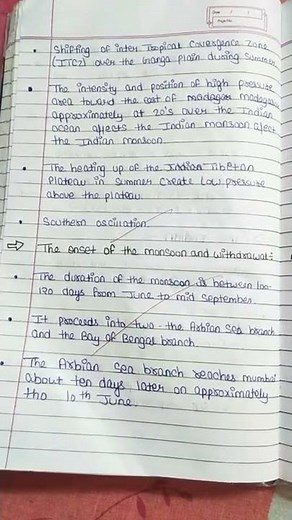 Date
Page No.
• Shifting of inter Tropical Covergence Zone
(ITCZ) over the Ganga plain during Summer
• The intensity and position of high pressure
area toward the east of madagar madagas
approximately at 20°s over the Indian
ocean affects the Indian monsoon afect
the Indian monsoon.
• The heating up of the Indian Tibetan
Plateau in summer create Low pressure
above the plateau.
• Southern oscillation.
⇒ The onset of the monsoon and withdrawal:
• The duration of the monsoon is between 100-
120 days from June to mid September.
• It proceeds into two - the Arbian Sea branch
and the Bay of Bengal branch.
• The Arbian sea branch reaches mumbai
about ten days later on approximately
the 10th June.